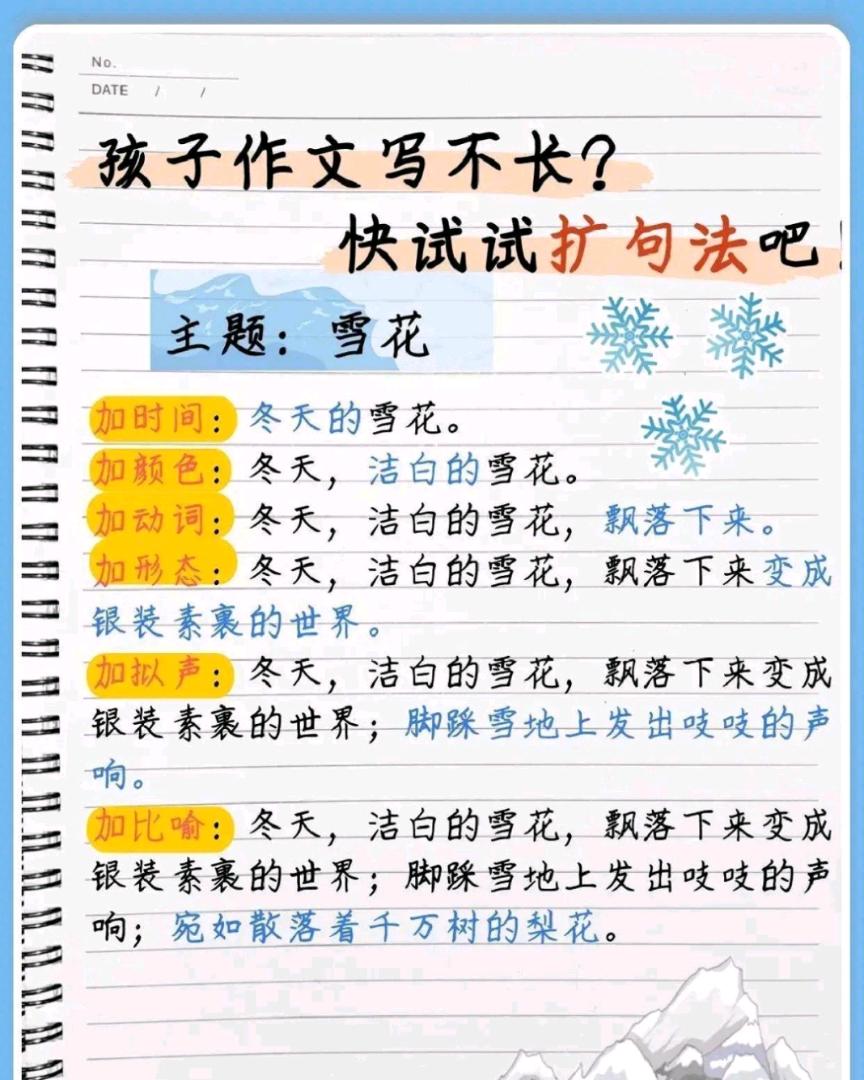 No.
DATE / /
孩子作文写不长？
快试试扩句法吧！
主题：雪花
加时间：冬天的雪花。
加颜色：冬天，洁白的雪花。
加动词：冬天，洁白的雪花，飘落下来。
加形态：冬天，洁白的雪花，飘落下来变成
银装素裹的世界。
加拟声：冬天，洁白的雪花，飘落下来变成
银装素裹的世界；脚踩雪地上发出吱吱的声
响。
加比喻：冬天，洁白的雪花，飘落下来变成
银装素裹的世界；脚踩雪地上发出吱吱的声
响；宛如散落着千万树的梨花。